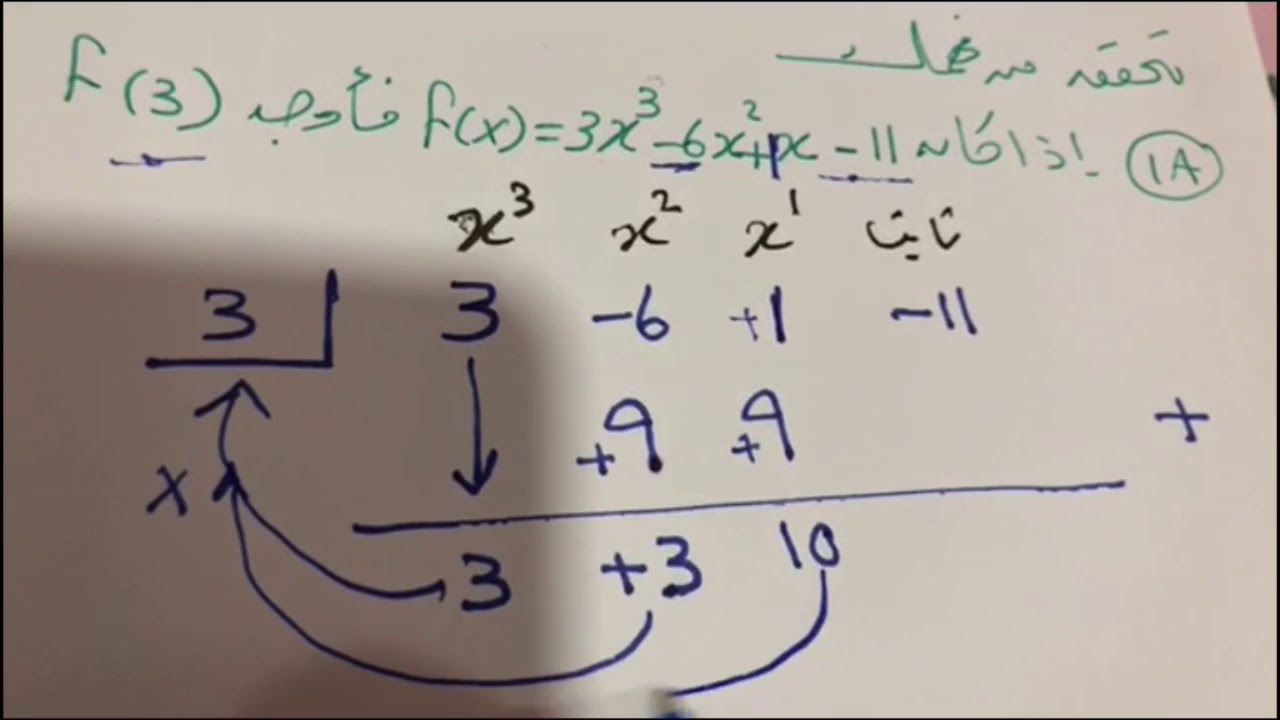 تحقق من فهمك
1A إذا كان f(x) = 3x³ - 6x² + x - 11 فأوجد f(3)
x³ x² x¹ ثابت
3 3 -6 +1 -11
+9 +9 +
x
3 +3 10